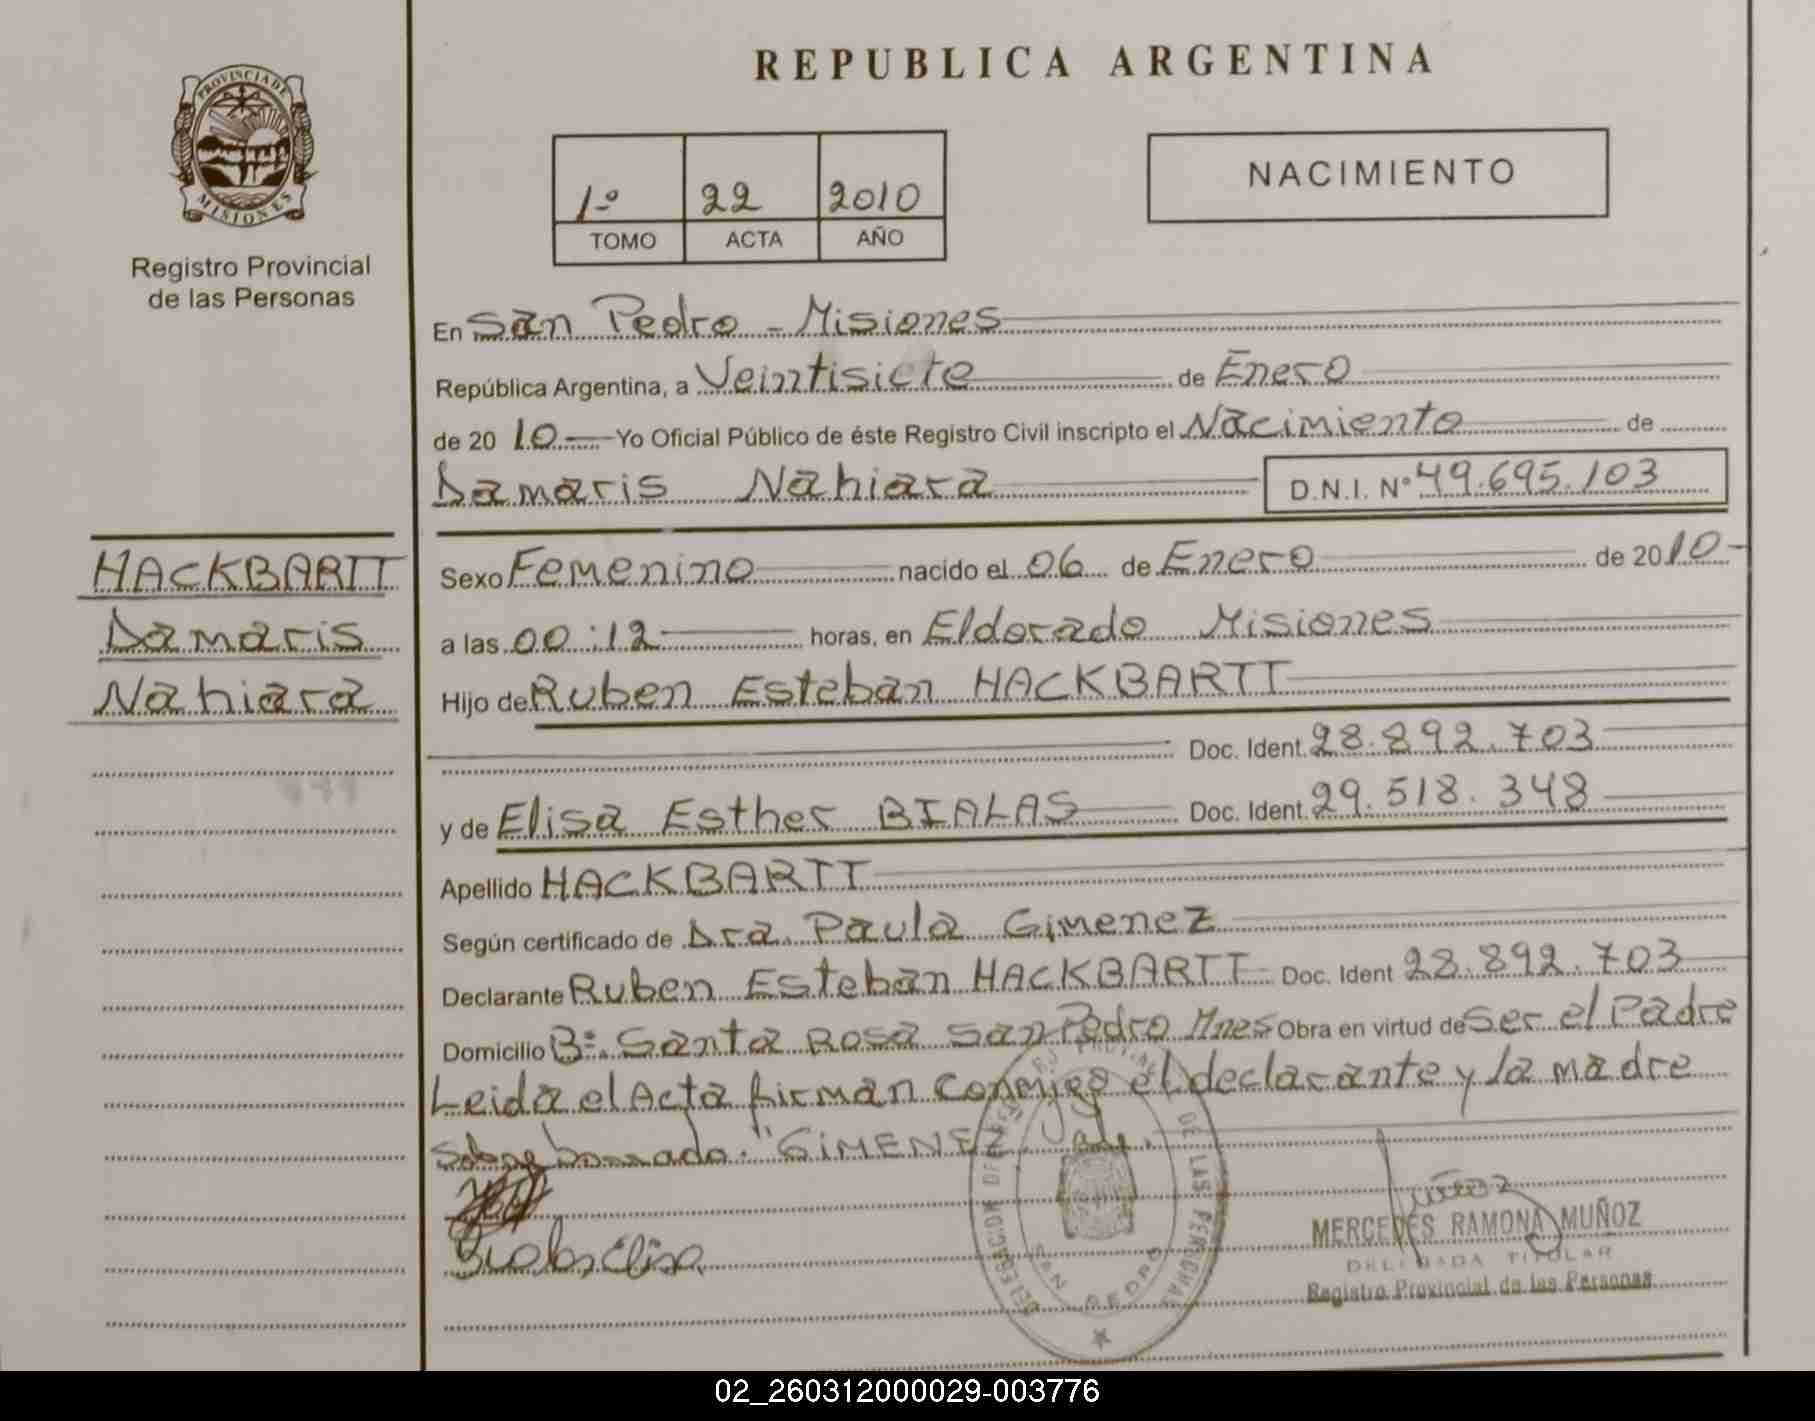 REPUBLICA ARGENTINA
PROVINCIA DE
MISIONES
Registro Provincial
de las Personas
1º 22 2010
TOMO ACTA AÑO
NACIMIENTO
En San Pedro - Misiones
República Argentina, a Veintisiete de Enero
de 20 10 Yo Oficial Público de éste Registro Civil inscripto el Nacimiento de
Damaris Nahiara D.N.I. Nº 49.695.103
HACKBARTT
Damaris
Nahiara
Sexo Femenino nacido el 06 de Enero de 2010-
a las 00:12 horas, en Eldorado Misiones
Hijo de Ruben Esteban HACKBARTT
Doc. Ident. 28.892.703
y de Elisa Esther BIALAS Doc. Ident. 29.518.348
Apellido HACKBARTT
Según certificado de Dra. Paula Gimenez
Declarante Ruben Esteban HACKBARTT Doc. Ident 28.892.703
Domicilio Bº. Santa Rosa San Pedro Mnes Obra en virtud de Ser el Padre
Leida el Acta firman conmigo el declarante y la madre
Sobre borrado. "GIMENEZ"
Bialas Elisa
DE LAS PERSONAS
SAN PEDRO
MERCEDES RAMONA MUÑOZ
DELEGADA TITULAR
Registro Provincial de las Personas
02_260312000029-003776